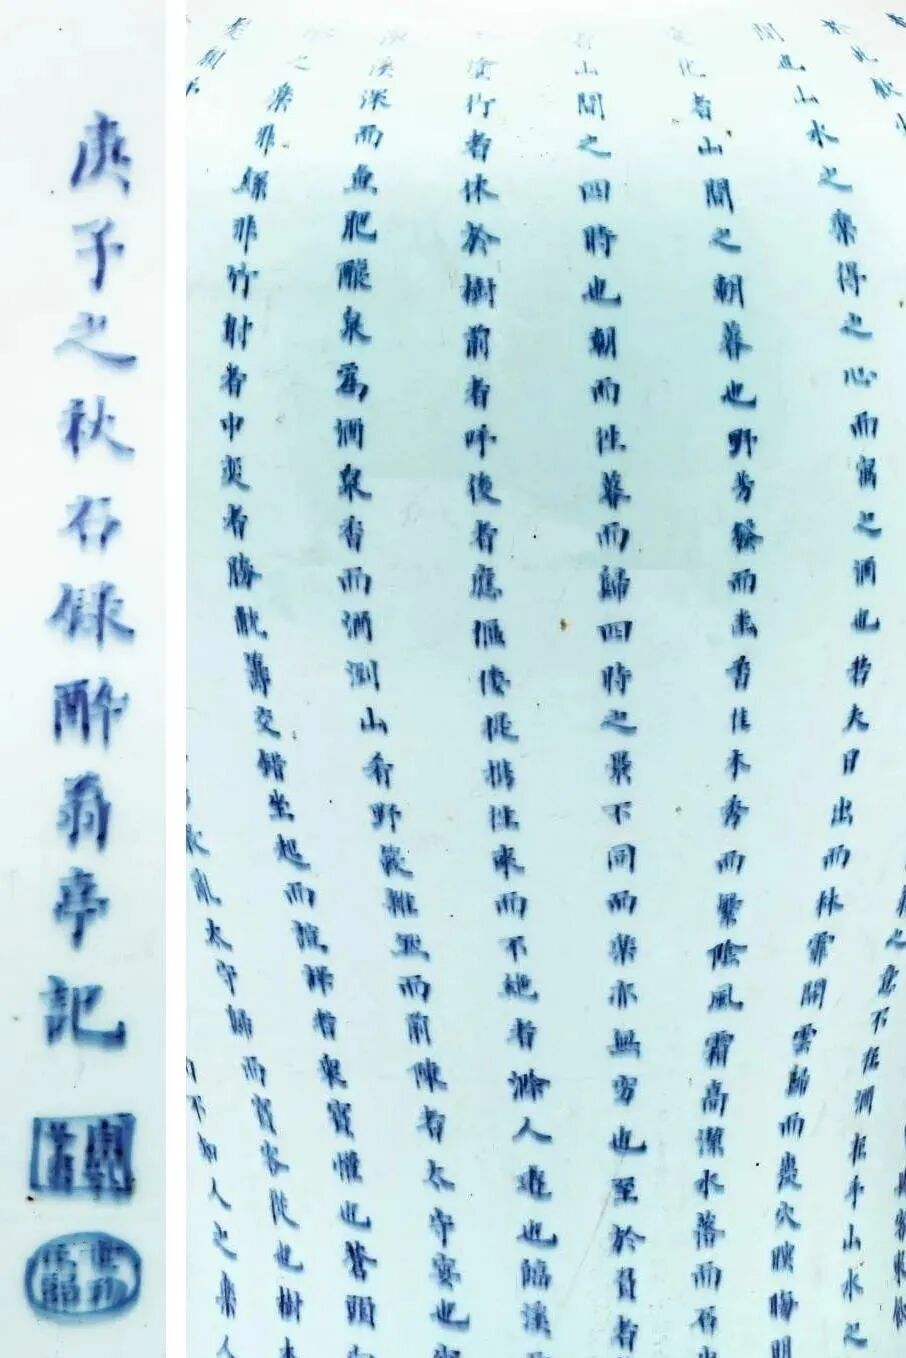 與客來飲
此飲少
之意不在酒在乎山水之
間也山水之樂得之心而寓之酒也若夫日出而林霏開雲歸而巖穴暝晦明
變化者山間之朝暮也野芳發而幽香佳木秀而繁陰風霜高潔水落而石出
者山間之四時也朝而往暮而歸四時之景不同而樂亦無窮也至於負者
塗行者休於樹前者呼後者應傴僂提攜往來而不絶者滁人遊也臨溪
漁溪深而魚肥釀泉爲酒泉香而酒洌山肴野蔌雜然而前陳者太守宴也宴
之樂非絲非竹射者中奕者勝觥籌交錯坐起而諠譁者衆賓懽也蒼頭白
髮頹
散亂太守歸而賓客從也樹木
而不知人之樂人
庚子之秋石録醉翁亭記